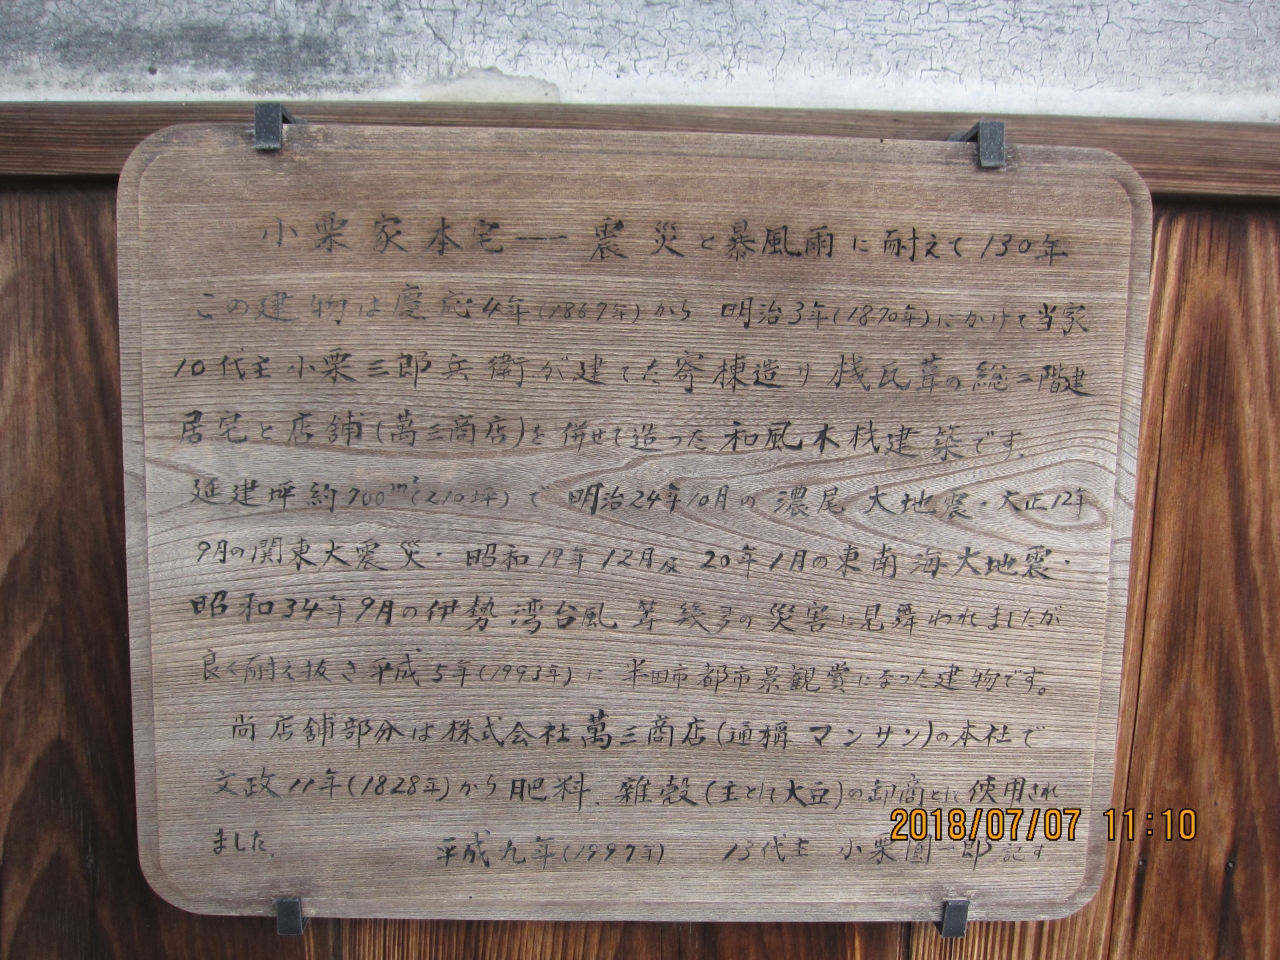 小栗家本宅——震災と暴風雨に耐えて130年
この建物は慶応4年(1867年)から 明治3年(1870年)にかけて当家
10代主小栗三郎兵衛が建てた寄棟造り桟瓦葺の総二階建
居宅と店舗(萬三商店)を併せて造った和風木材建築です。
延建坪約700m²(210坪)で 明治24年10月の濃尾大地震・大正12年
9月の関東大震災・昭和19年12月及20年1月の東南海大地震・
昭和34年9月の伊勢湾台風等幾多の災害に見舞われましたが
良く耐え抜き平成5年(1993年)に半田市都市景観賞になった建物です。
尚店舗部分は株式会社萬三商店(通稱マンサン)の本社で
文政11年(1828年)から肥料、雑穀(主として大豆)の卸商として使用され
ました。 平成九年(1997年) 13代主 小栗 一郎 記す
2018/07/07 11:10